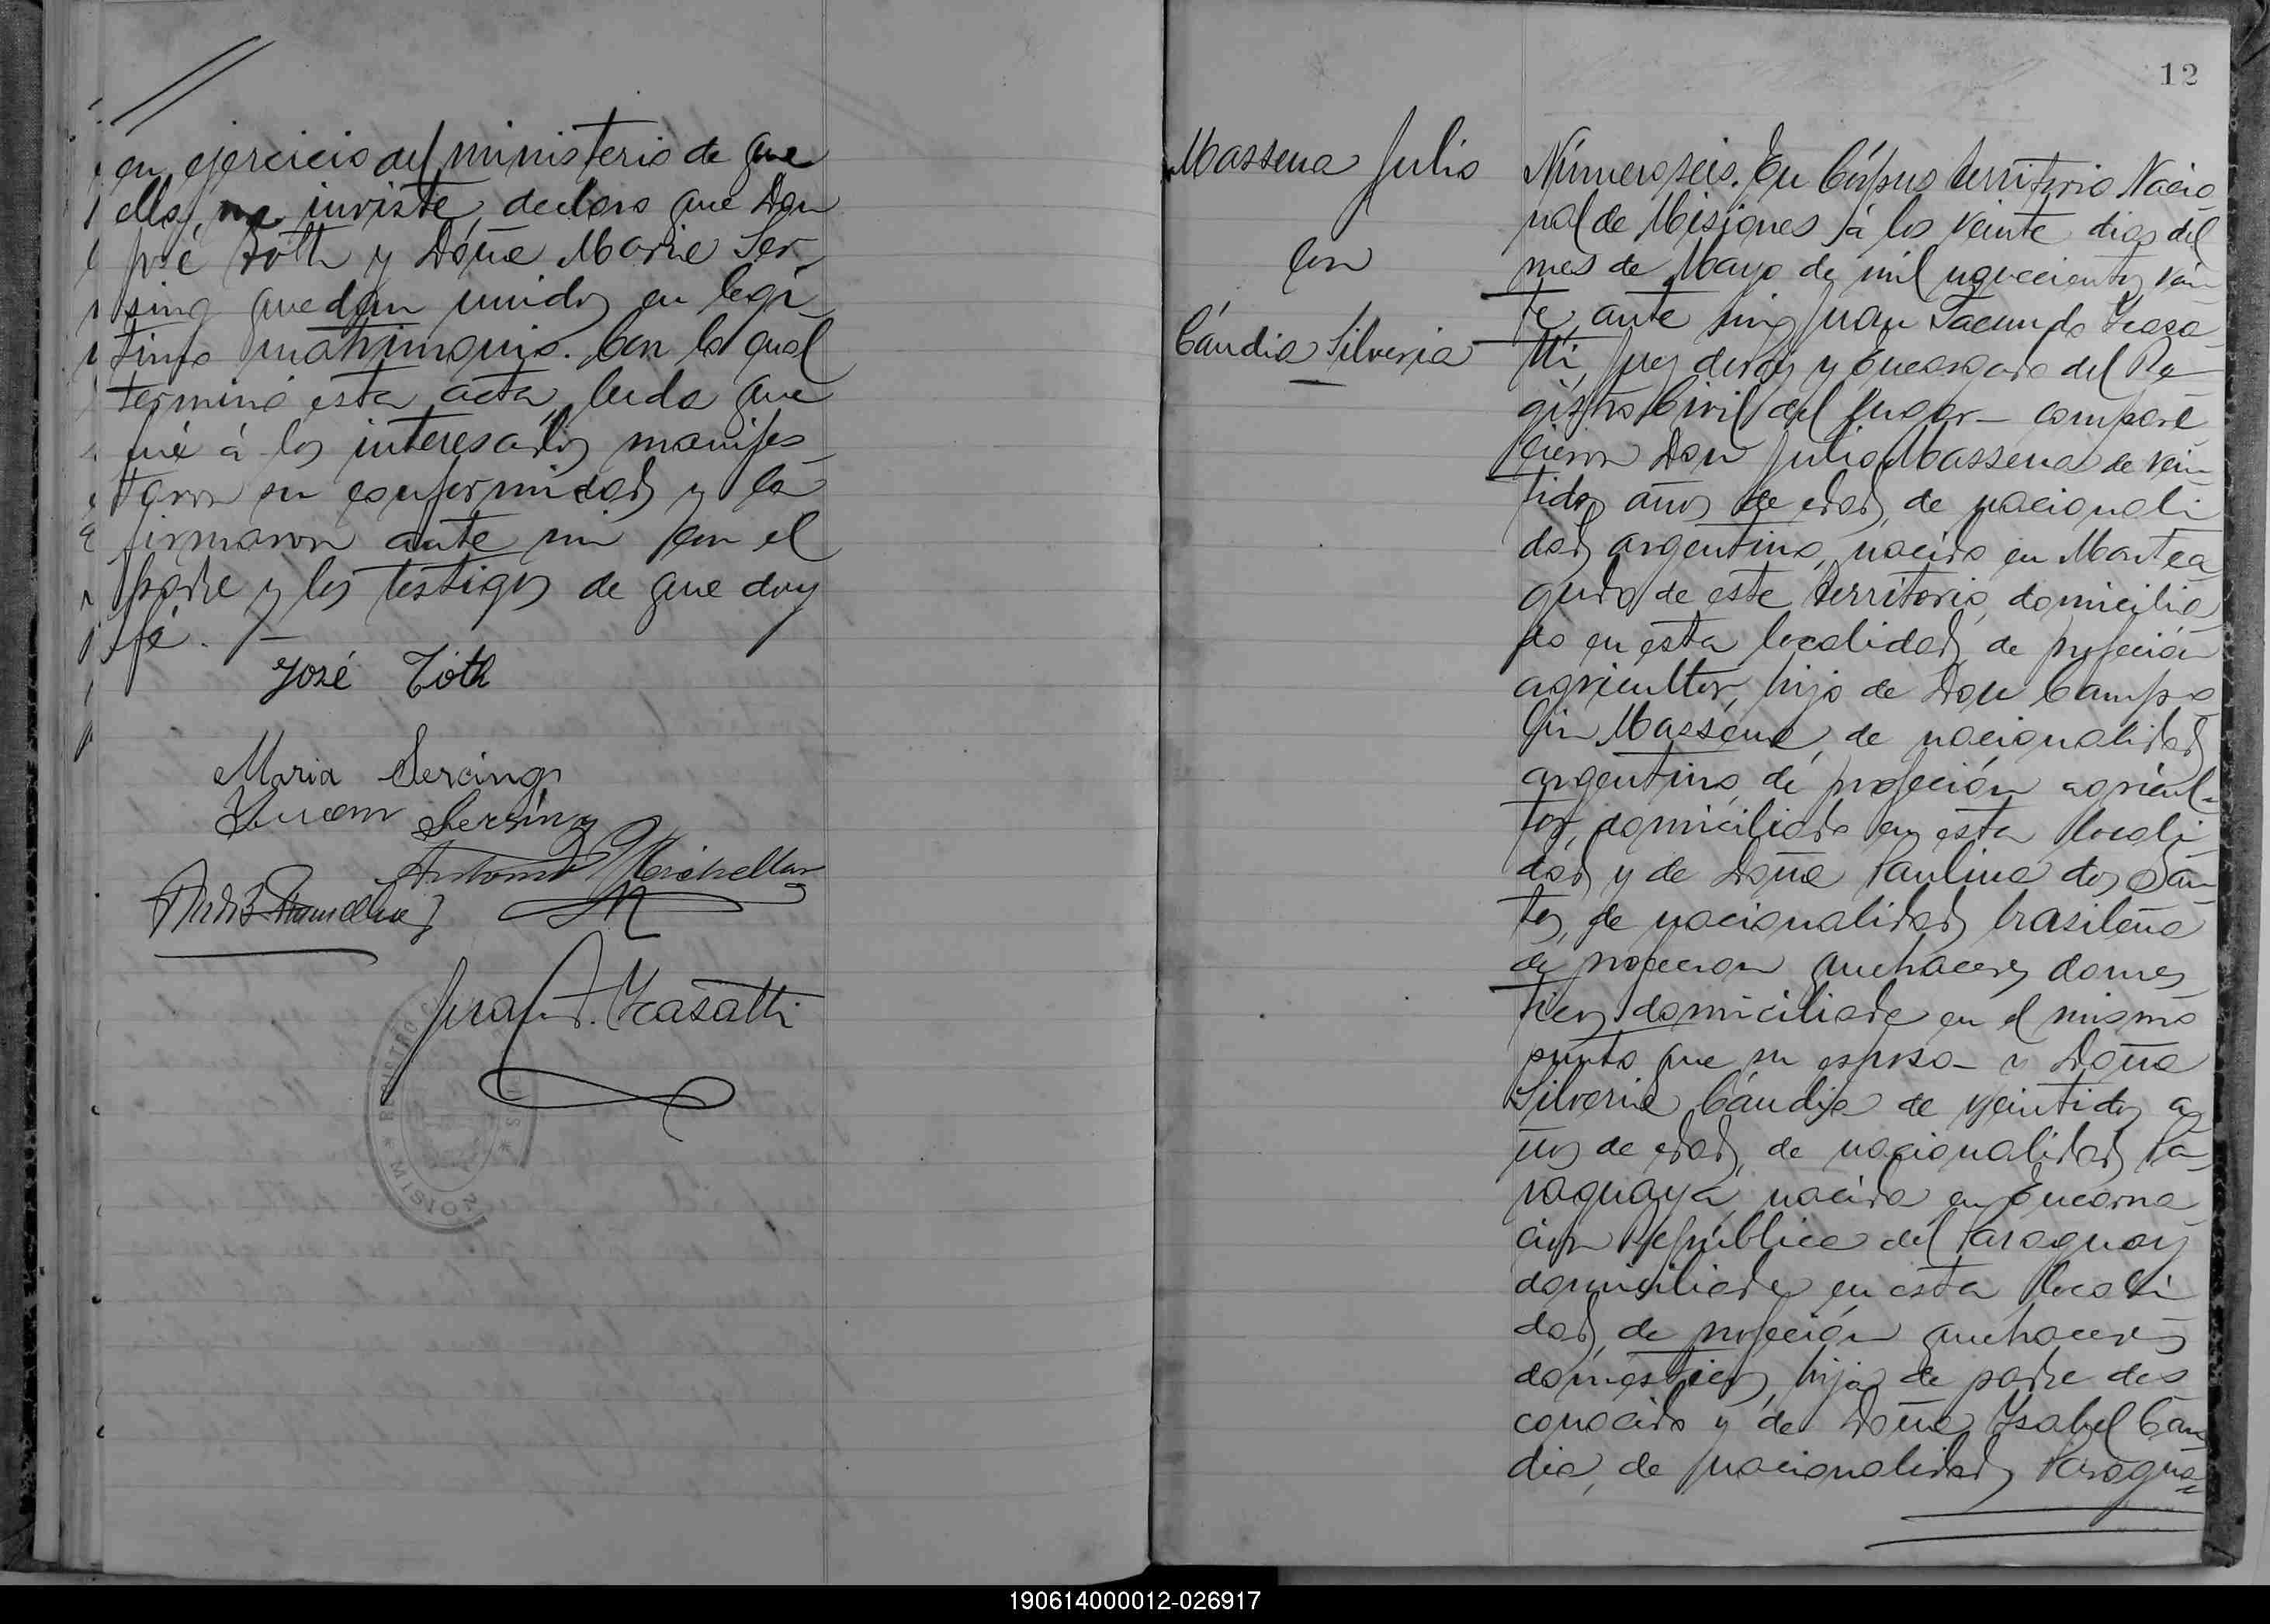 en ejercicio del ministerio de que
ella, me inviste, declaro que Don
José Tóth y Doña Maria Ser-
sing quedan unidos en legí-
timo matrimonio. Con lo qual
terminó esta acta, leida que
fué á los interesados manifes-
taron su conformidad y la
firmaron ante mi con el
padre y los testigos de que doy
fé.
José Tóth
Maria Sercing
Sersing
Antonio
Juan F. Ycasatti
REGISTRO
MISIONES
12
Massena Julio
con
Cándia Silveria
Número seis. En Córpus territorio Nacio
nal de Misiones á los veinte dias del
mes de Mayo de mil novecientos vein
te, ante mi, Juan Facundo Ycasa-
tti, Juez de Paz y Encargado del Re
gistro Civil del lugar - compare
cieron Don Julio Massena de vein
tidos años de edad, de nacionali
dad argentina, nacido en Montea
gudo de este territorio, domicilia
do en esta localidad, de profeción
agricultor, hijo de Don Campo
lin Massena, de nacionalidad
argentino, de profeción agricul-
tor, domiciliado en esta locali
dad y de Doña Paulina dos San
tos, de nacionalidad brasileña
de profecion quehaceres domes
ticos domiciliada en el mismo
punto que su esposo - y Doña
Silveria Cándia de veintidos a
ños de edad, de nacionalidad Pa
raguaya, nacida en Encarna
cion República del Paraguay
domiciliada en esta locali
dad, de profeción quehaceres
domésticos, hija de padre des
conocido y de Doña Ysabel Can
dia, de nacionalidad Paragua=
190614000012-026917